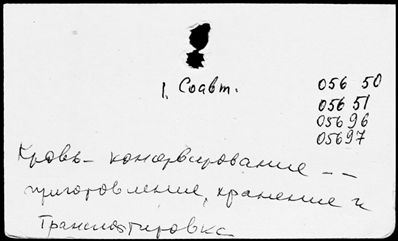 1. Соавт.
056 50
056 51
05696
05697
Кровь - консервирование --
приготовление, хранение и
Транспортировка